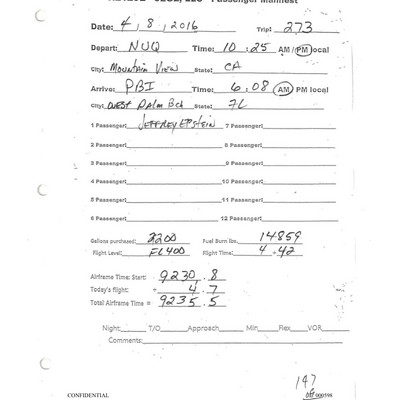 Passenger Manifest
Date: 4, 8, 2016 Trip: 273
Depart: NUQ Time: 10 : 25 AM / PM local
City: Mountain View State: CA
Arrive: PBI Time: 6 : 08 AM PM local
City: West Palm Bch State: FL
1 Passenger JEFFREY EPSTEIN 7 Passenger
2 Passenger 8 Passenger
3 Passenger 9 Passenger
4 Passenger 10 Passenger
5 Passenger 11 Passenger
6 Passenger 12 Passenger
Gallons purchased: 2200 Fuel Burn lbs. 14859
Flight Level: FL400 Flight Time: 4+42
Airframe Time: Start: 9230.8
Today's flight: + 4.7
Total Airframe Time = 9235.5
Night: T/O Approach Min Flex VOR
Comments:
147
CONFIDENTIAL 000598